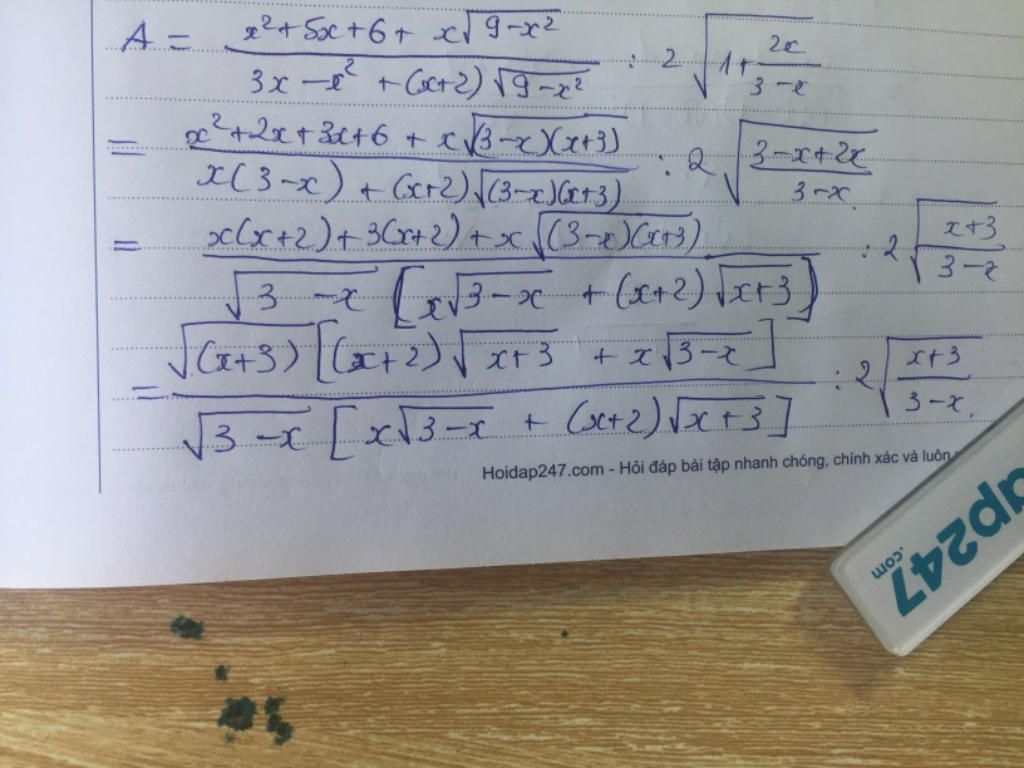 A = \frac{x^2+5x+6+x\sqrt{9-x^2}}{3x-x^2+(x+2)\sqrt{9-x^2}} : 2\sqrt{1+\frac{2x}{3-x}}
= \frac{x^2+2x+3x+6+x\sqrt{(3-x)(x+3)}}{x(3-x)+(x+2)\sqrt{(3-x)(x+3)}} : 2\sqrt{\frac{3-x+2x}{3-x}}
= \frac{x(x+2)+3(x+2)+x\sqrt{(3-x)(x+3)}}{\sqrt{3-x}[x\sqrt{3-x}+(x+2)\sqrt{x+3}]} : 2\sqrt{\frac{x+3}{3-x}}
= \frac{\sqrt{(x+3)}[(x+2)\sqrt{x+3}+x\sqrt{3-x}]}{\sqrt{3-x}[x\sqrt{3-x}+(x+2)\sqrt{x+3}]} : 2\sqrt{\frac{x+3}{3-x}}
Hoidap247.com - Hỏi đáp bài tập nhanh chóng, chính xác và luôn
ap247
.com